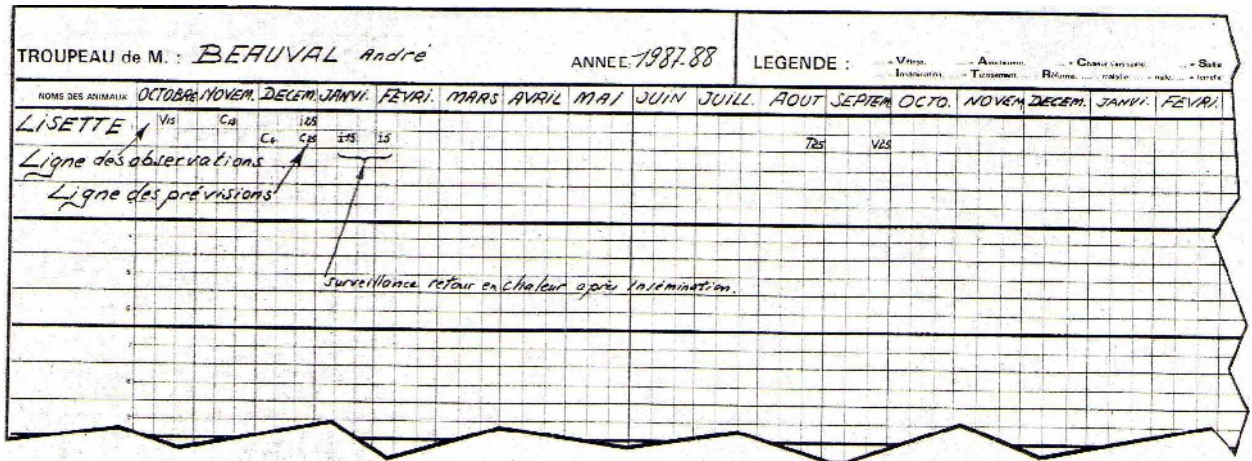 TROUPEAU de M. : BEAUVAL André ANNEE 1987-88 LEGENDE : - Vêlage. - Avortement. - Saillie
- Insémination. - Tarissement. Réforme.
NOMS DES ANIMAUX OCTOBRE NOVEM. DECEM. JANVI. FEVRI. MARS AVRIL MAI JUIN JUILL. AOUT SEPTEM OCTO. NOVEM DECEM. JANVI. FEVRI.
LISETTE V15 i25
C25 i15 i5 T25 V25
Ligne des observations
Ligne des prévisions
surveillance retour en chaleur après insémination.